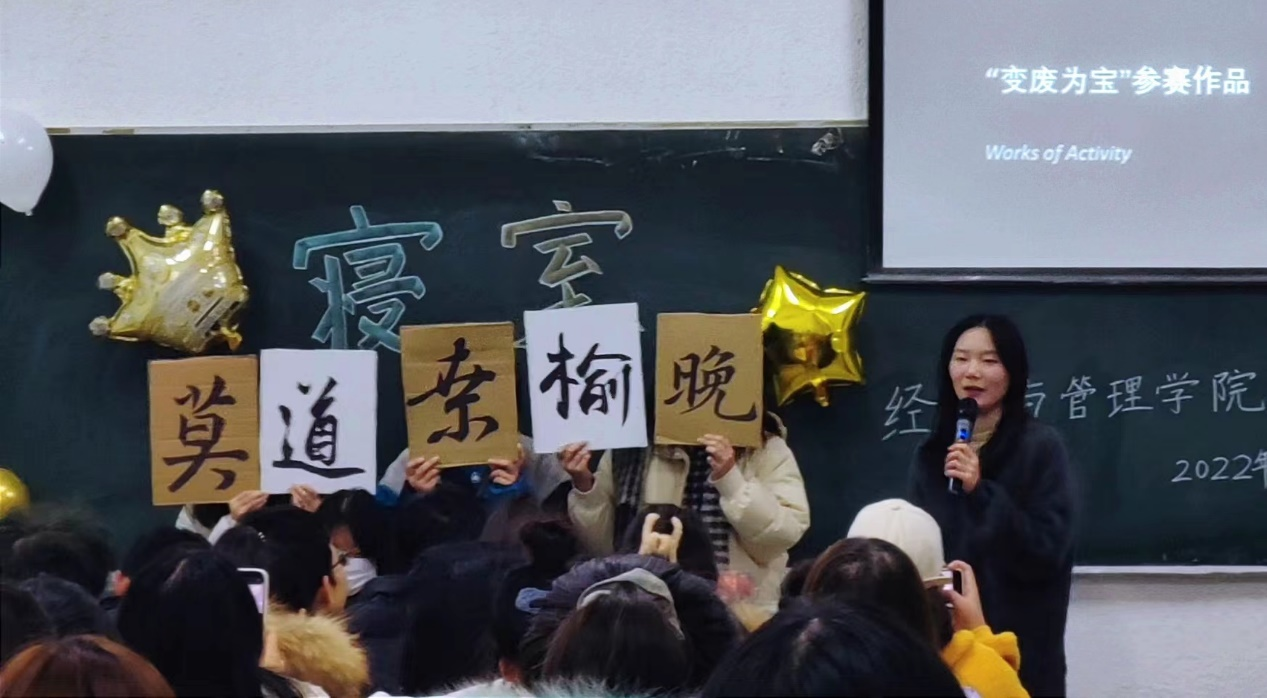 “变废为宝”参赛作品
Works of Activity
寝室
莫道桑榆晚
经 与管理学院
2022年